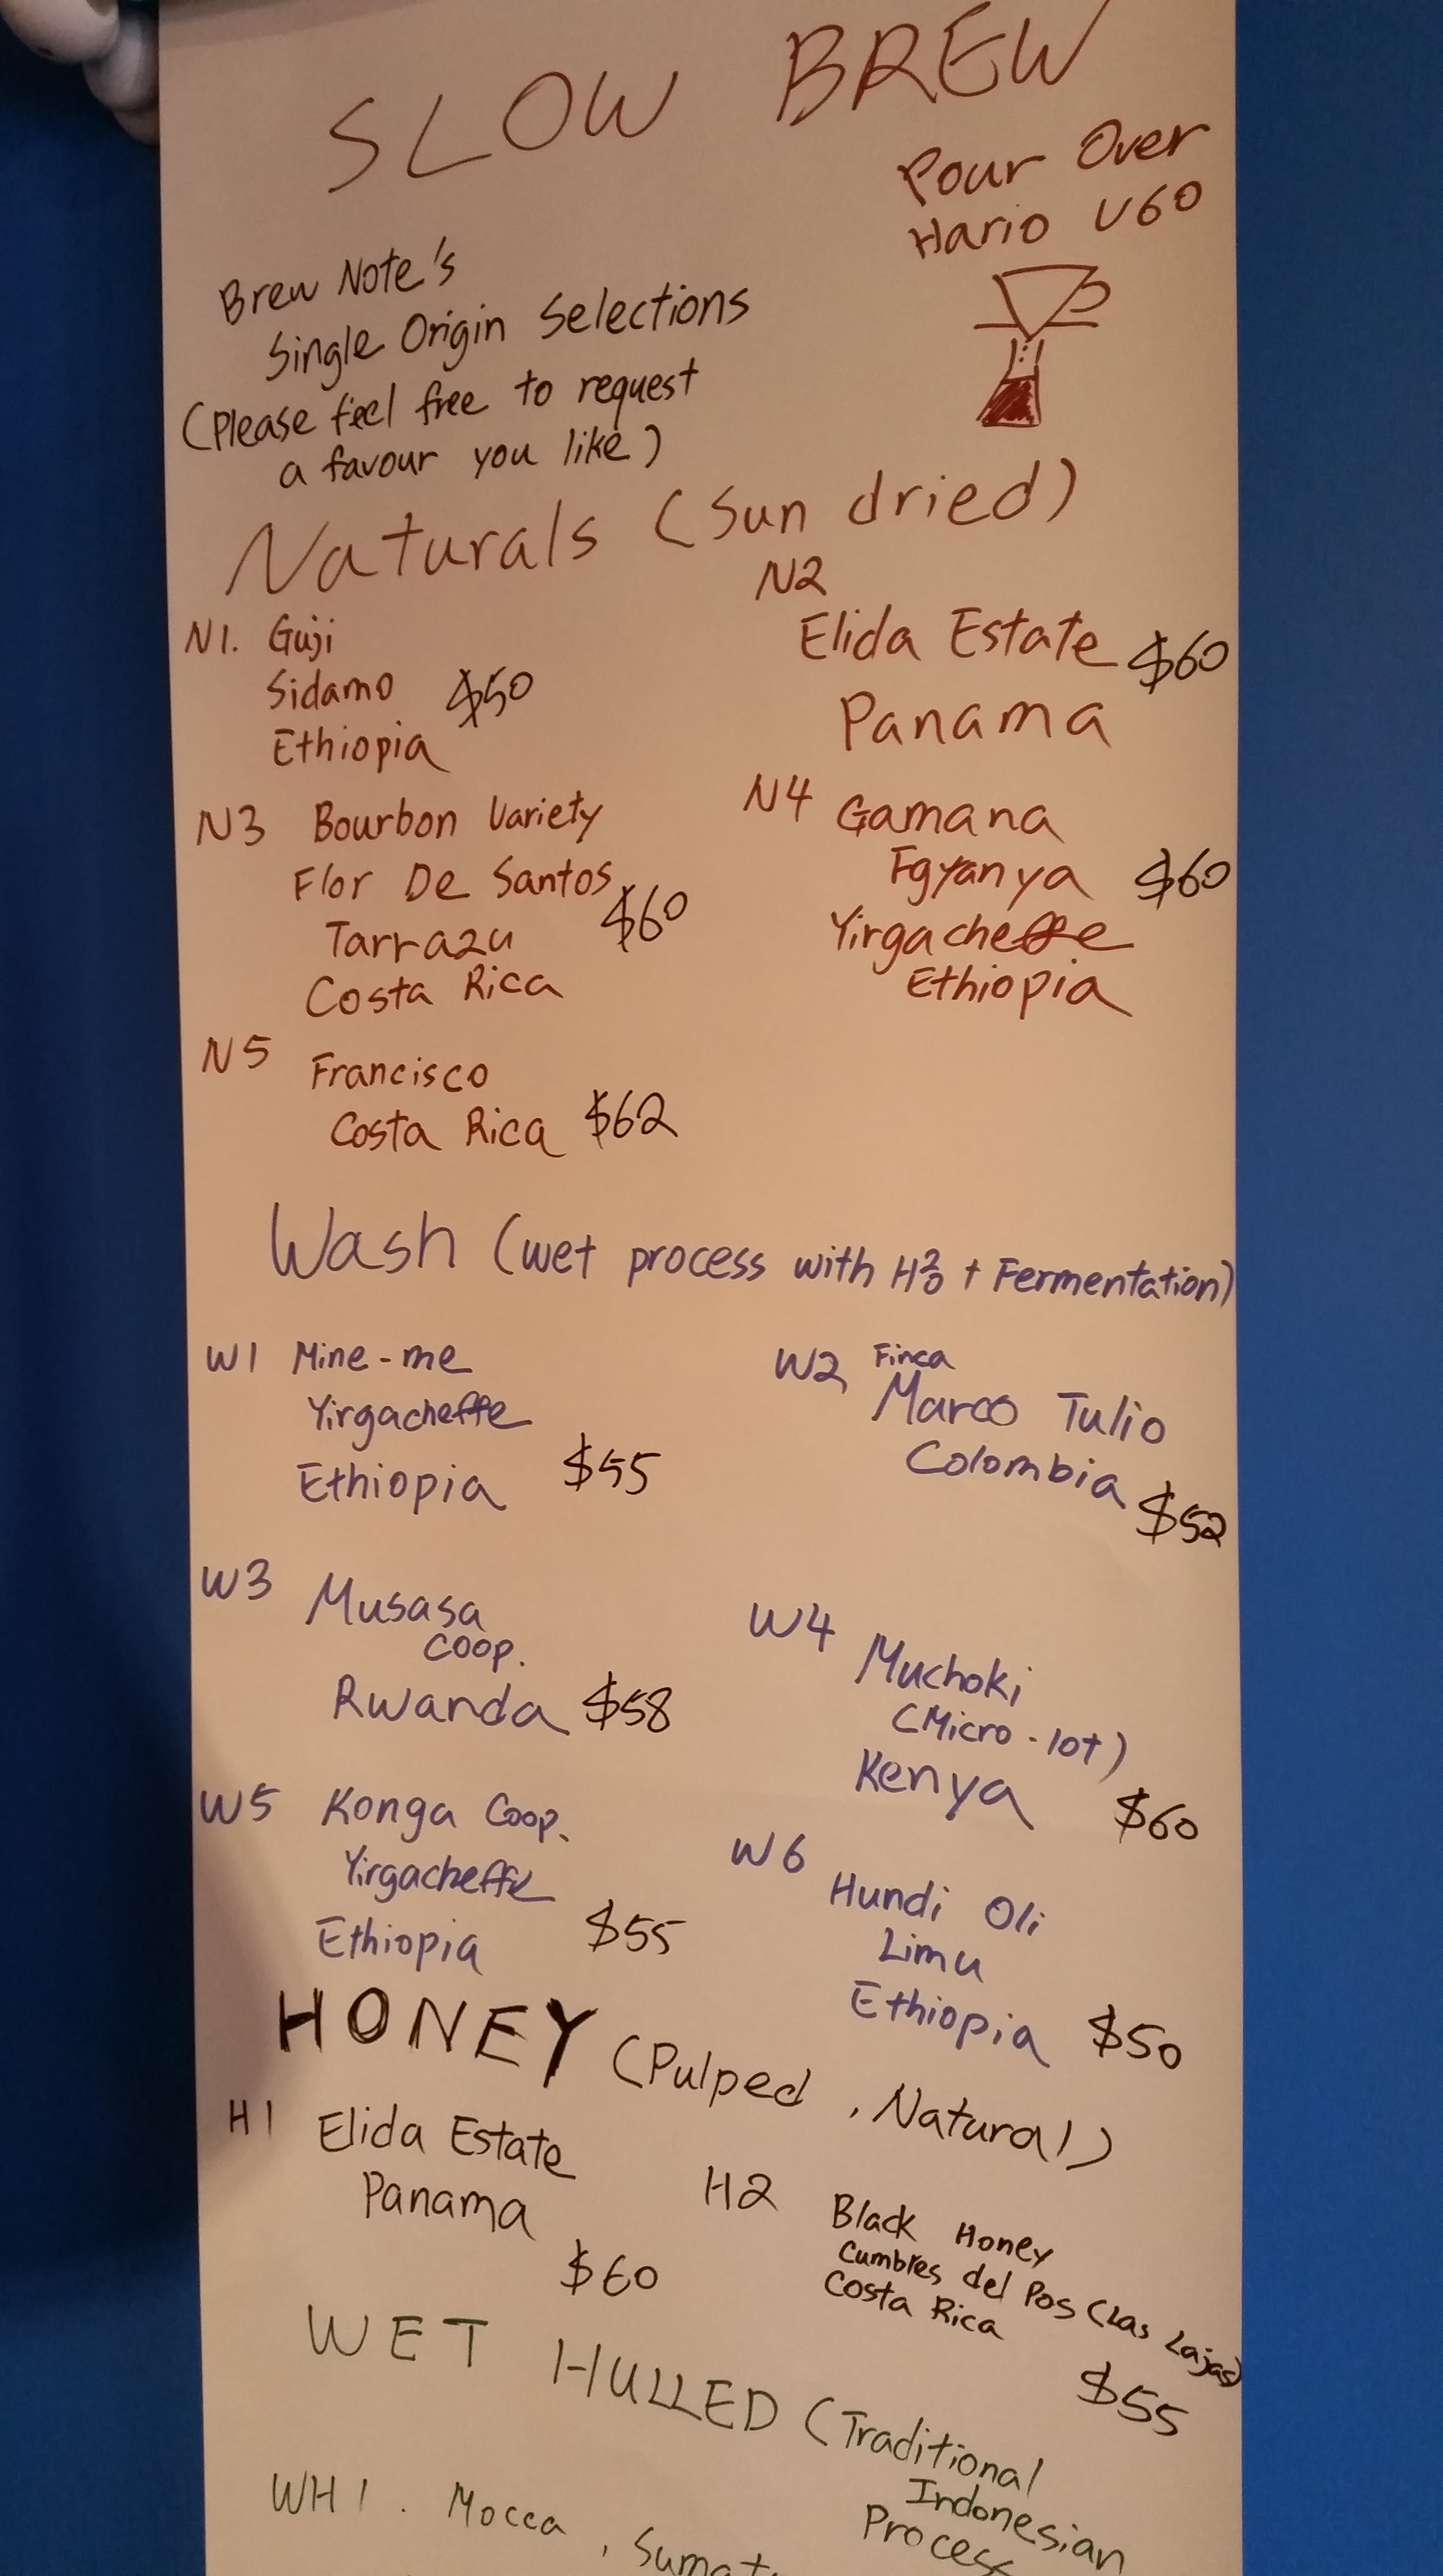 SLOW BREW
Pour Over
Hario V60
Brew Note's
Single Origin Selections
(Please feel free to request
a favour you like)
Naturals (Sun dried)
N1. Guji
Sidamo $50
Ethiopia
N2
Elida Estate $60
Panama
N3 Bourbon Variety
Flor De Santos
Tarrazu $60
Costa Rica
N4 Gamana
Fgyanya $60
Yirgacheffe
Ethiopia
N5 Francisco
Costa Rica $62
Wash (wet process with H2O + Fermentation)
W1 Mine-me
Yirgacheffe
Ethiopia $55
W2 Finca
Marco Tulio
Colombia
$52
W3 Musasa
Coop.
Rwanda $58
W4 Muchoki
(Micro-lot)
Kenya $60
W5 Konga Coop.
Yirgacheffe
Ethiopia $55
W6 Hundi Oli
Limu
Ethiopia $50
HONEY (Pulped, Natural)
H1 Elida Estate
Panama
$60
H2 Black Honey
Cumbres del Pos (Las Lajas)
Costa Rica
$55
WET HULLED (Traditional
Indonesian
Process
WH1. Mocca,